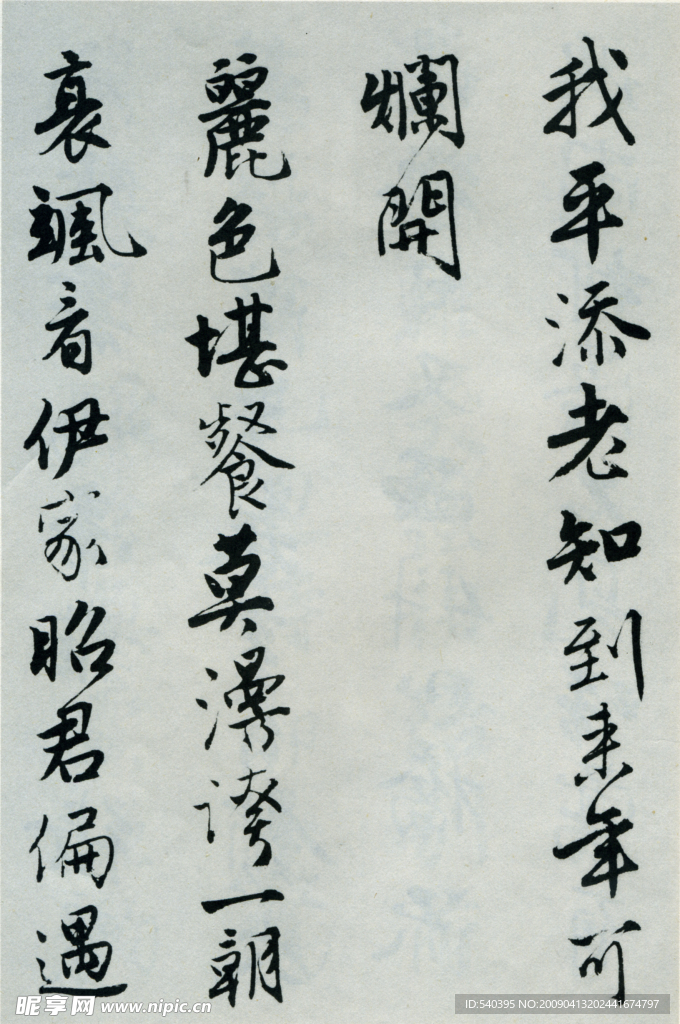 我平添老知到来年可
爛開
麗色堪餐莫漫誇一朝
衰颯看伊家昭君偏遇
昵享网 www.nipic.cn
ID:540395 NO:20090413202441674797